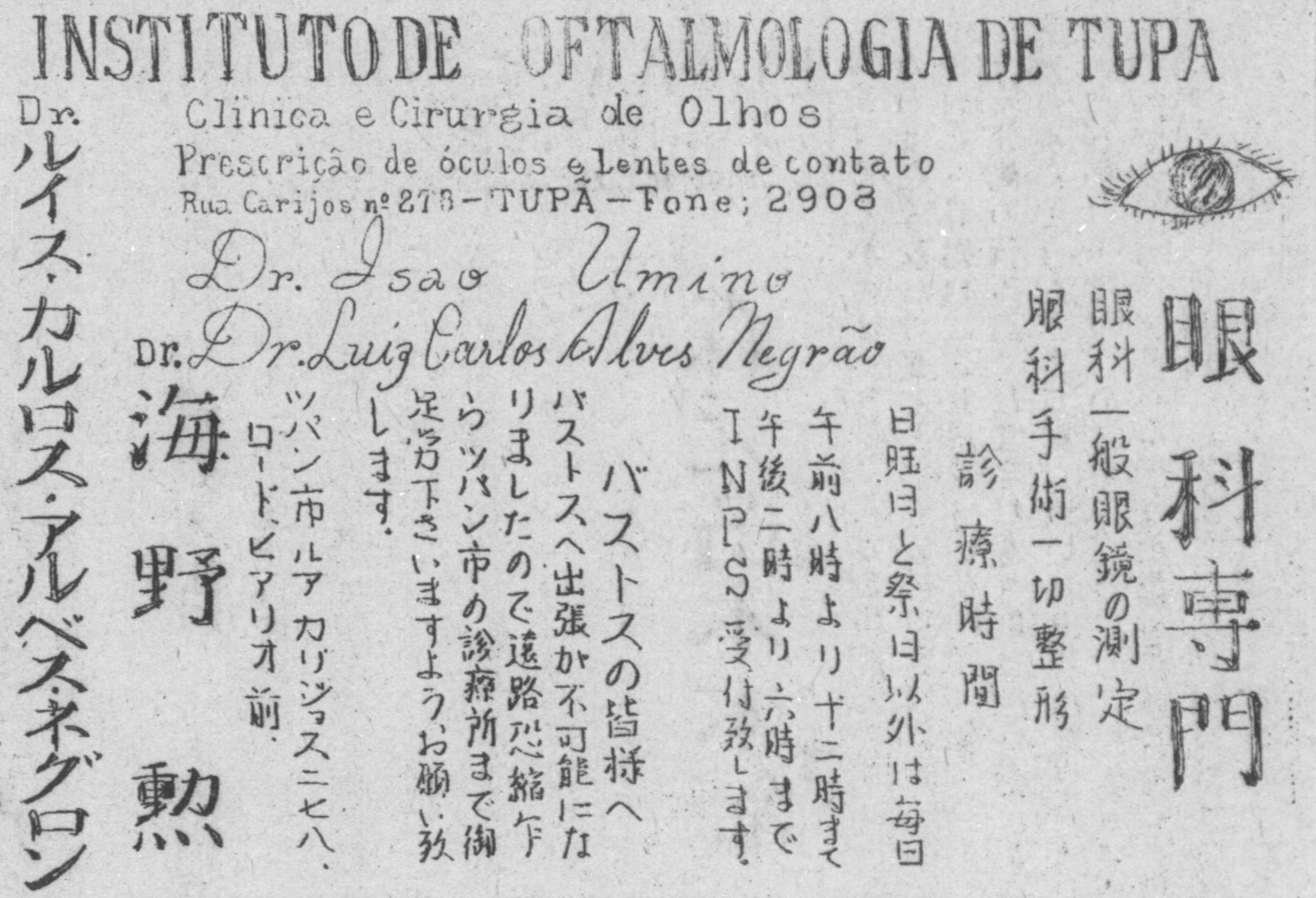 INSTITUTO DE OFTALMOLOGIA DE TUPA
Clínica e Cirurgia de Olhos
Prescrição de óculos e Lentes de contato
Rua Carijos nº 278 - TUPÃ - Fone; 2903
Dr. Isao Umino
Dr. Luiz Carlos Alves Negrão
眼科専門
眼科一般眼鏡の測定
眼科手術一切整形
診療時間
日旺日と祭日以外は毎日
午前八時より十二時まで
午後二時より六時まで
INPS受付致します。
バストスの皆様へ
バストスへ出張が不可能にな
りましたので遠路恐縮乍
らツパン市の診療所まで御
足労下さいますよう、お願い致
します。
ツパン市ルアカリジョス二七八、
ロードビアリオ前.
Dr.海野 勲
Dr.ルイス・カルロス・アルベス・ネグロン